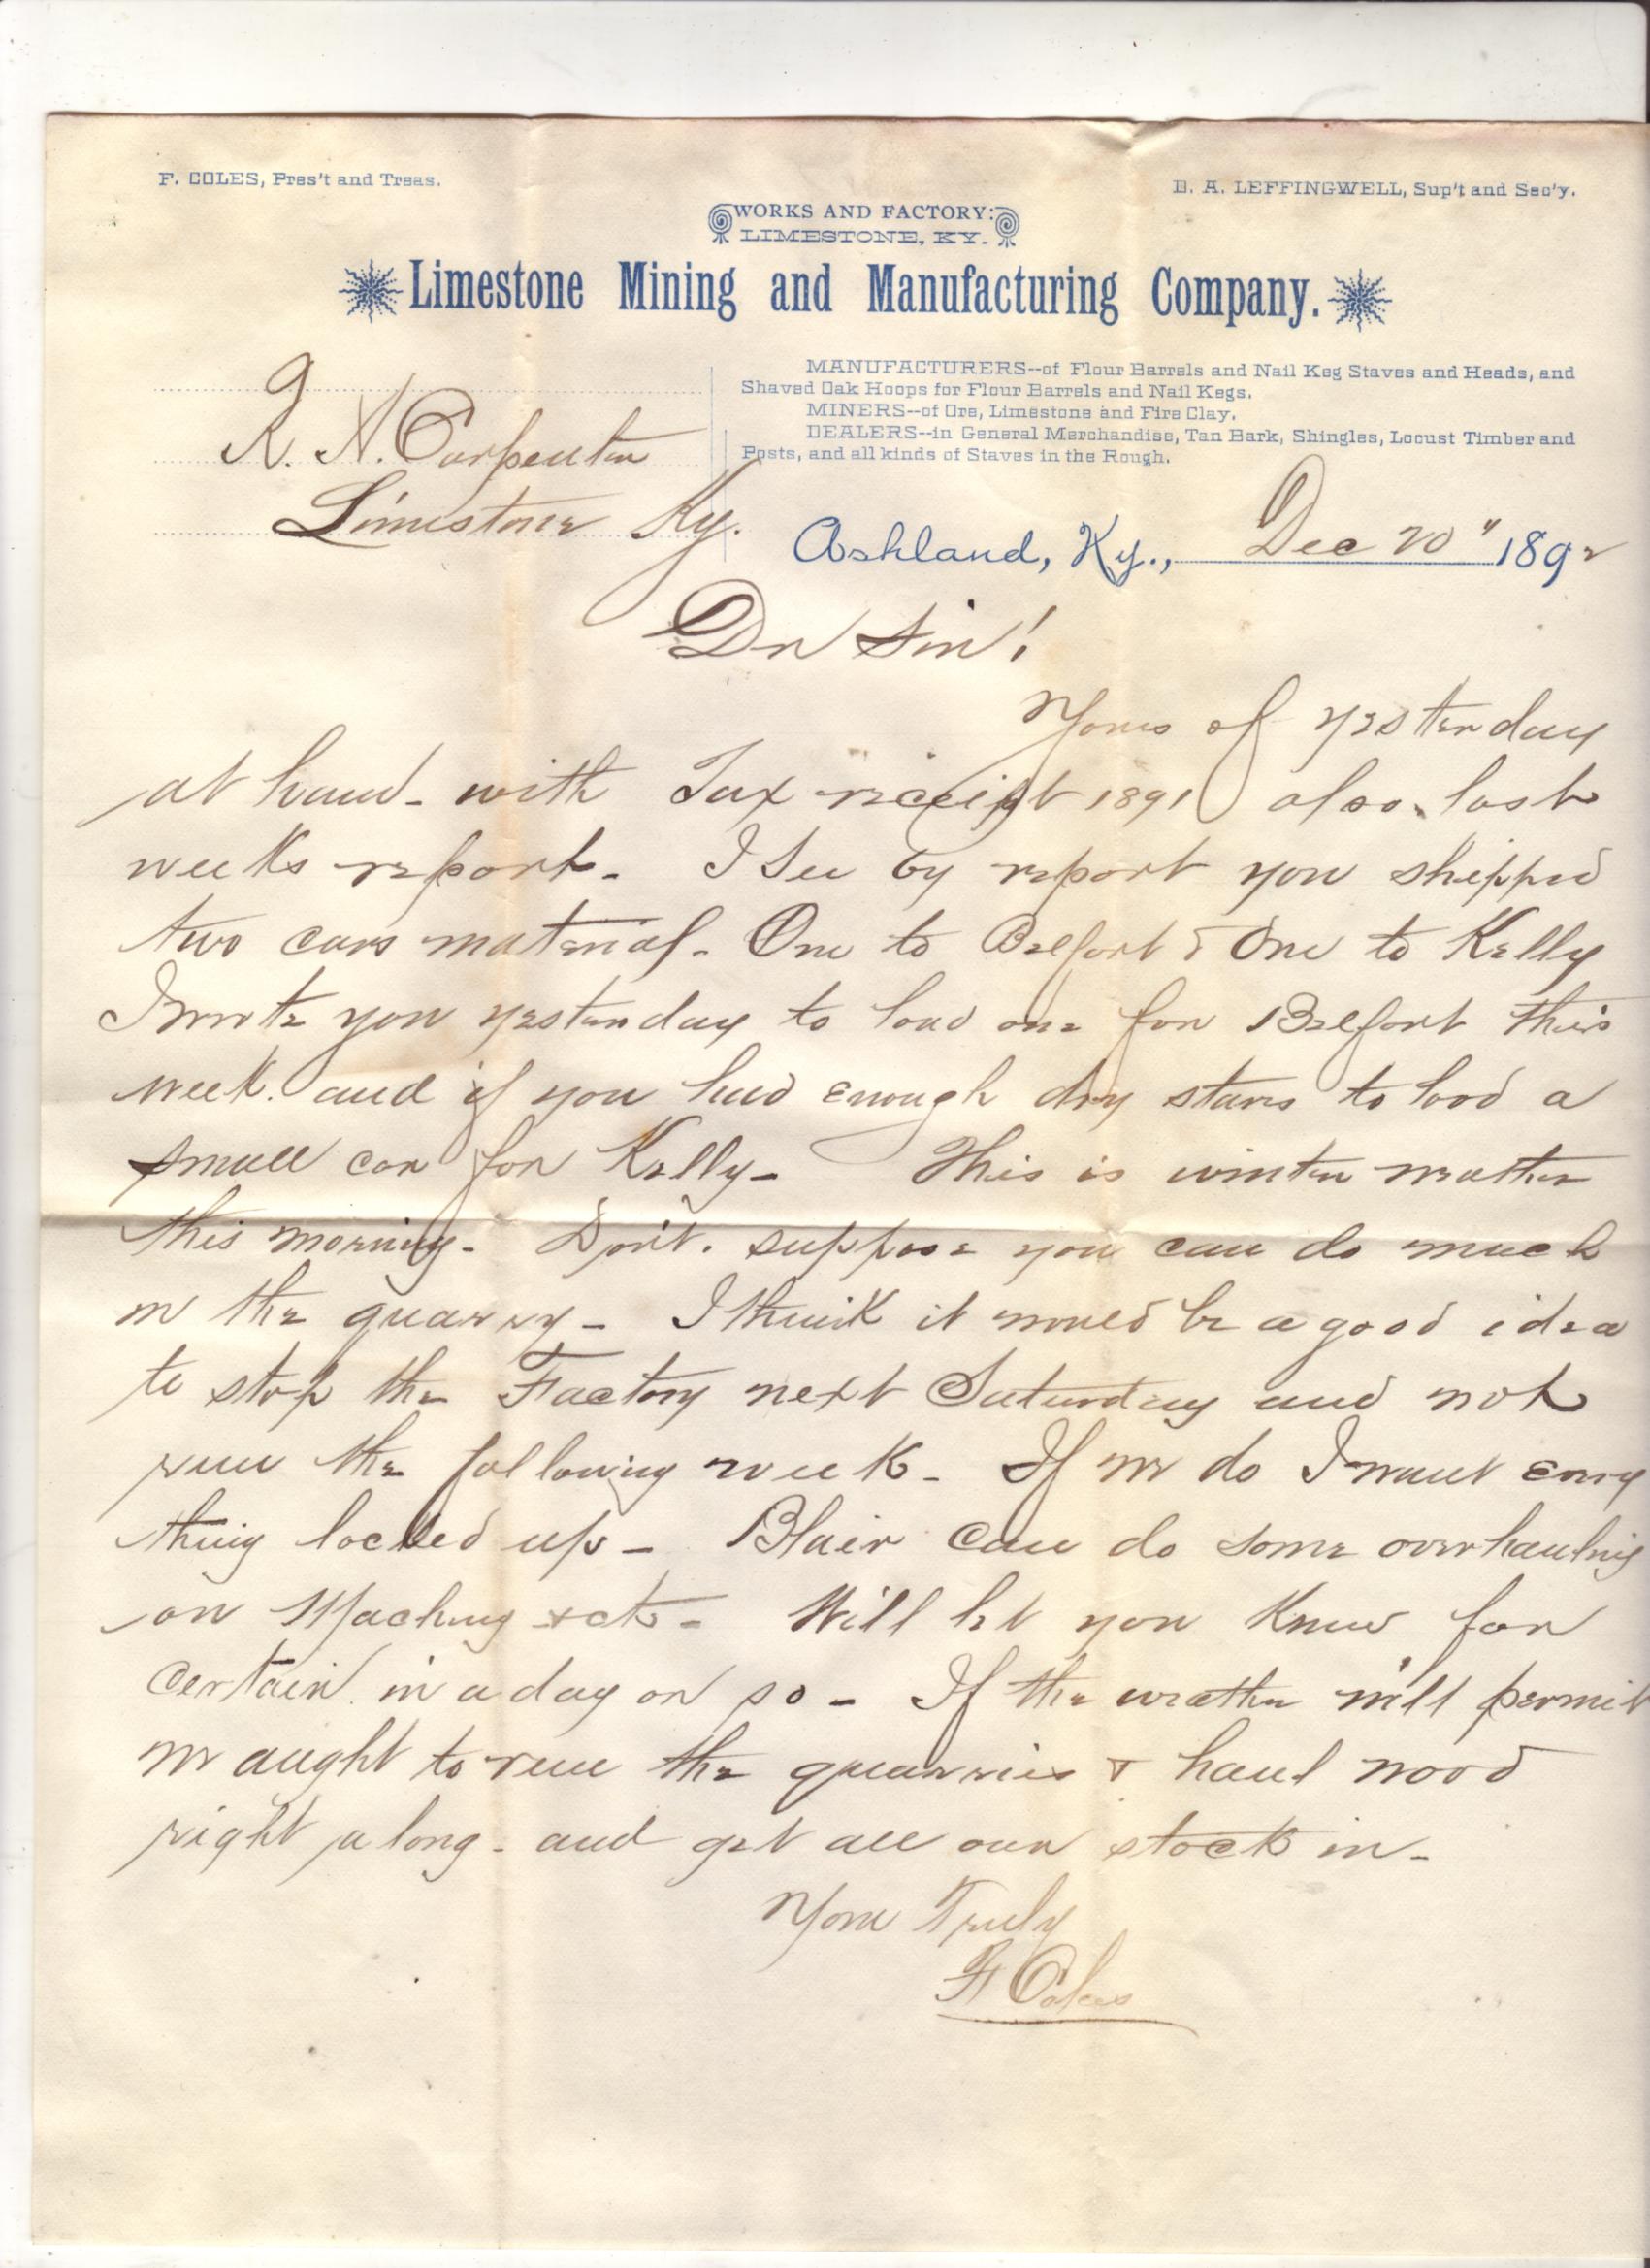 F. COLES, Pres't and Treas.
B. A. LEFFINGWELL, Sup't and Sec'y.
WORKS AND FACTORY:
LIMESTONE, KY.
Limestone Mining and Manufacturing Company.
MANUFACTURERS--of Flour Barrels and Nail Keg Staves and Heads, and
Shaved Oak Hoops for Flour Barrels and Nail Kegs.
MINERS--of Ore, Limestone and Fire Clay.
DEALERS--in General Merchandise, Tan Bark, Shingles, Locust Timber and
Posts, and all kinds of Staves in the Rough.
R. A. Carpenter
Limestone Ky.
Ashland, Ky., Dec 20" 1892
Dr Sir!
Yours of yesterday
at hand - with Tax receipt 1891 also last
weeks report - I See by report you shipped
two cars material - One to Belfort & One to Kelly
I wrote you yesterday to load one for Belfort this
week. and if you had enough dry staves to load a
small car for Kelly - This is winter weather
this morning - Don't. suppose you can do much
in the quarry - I think it would be a good idea
to stop the Factory next Saturday and not
run the following week - If we do I want every
thing locked up - Blair can do some overhauling
on &ct - Will let you know for
certain in a day or so - If the weather will permit
we aught to run the quarries & haul wood
right along - and get all our stock in -
Your Truly
F Coles